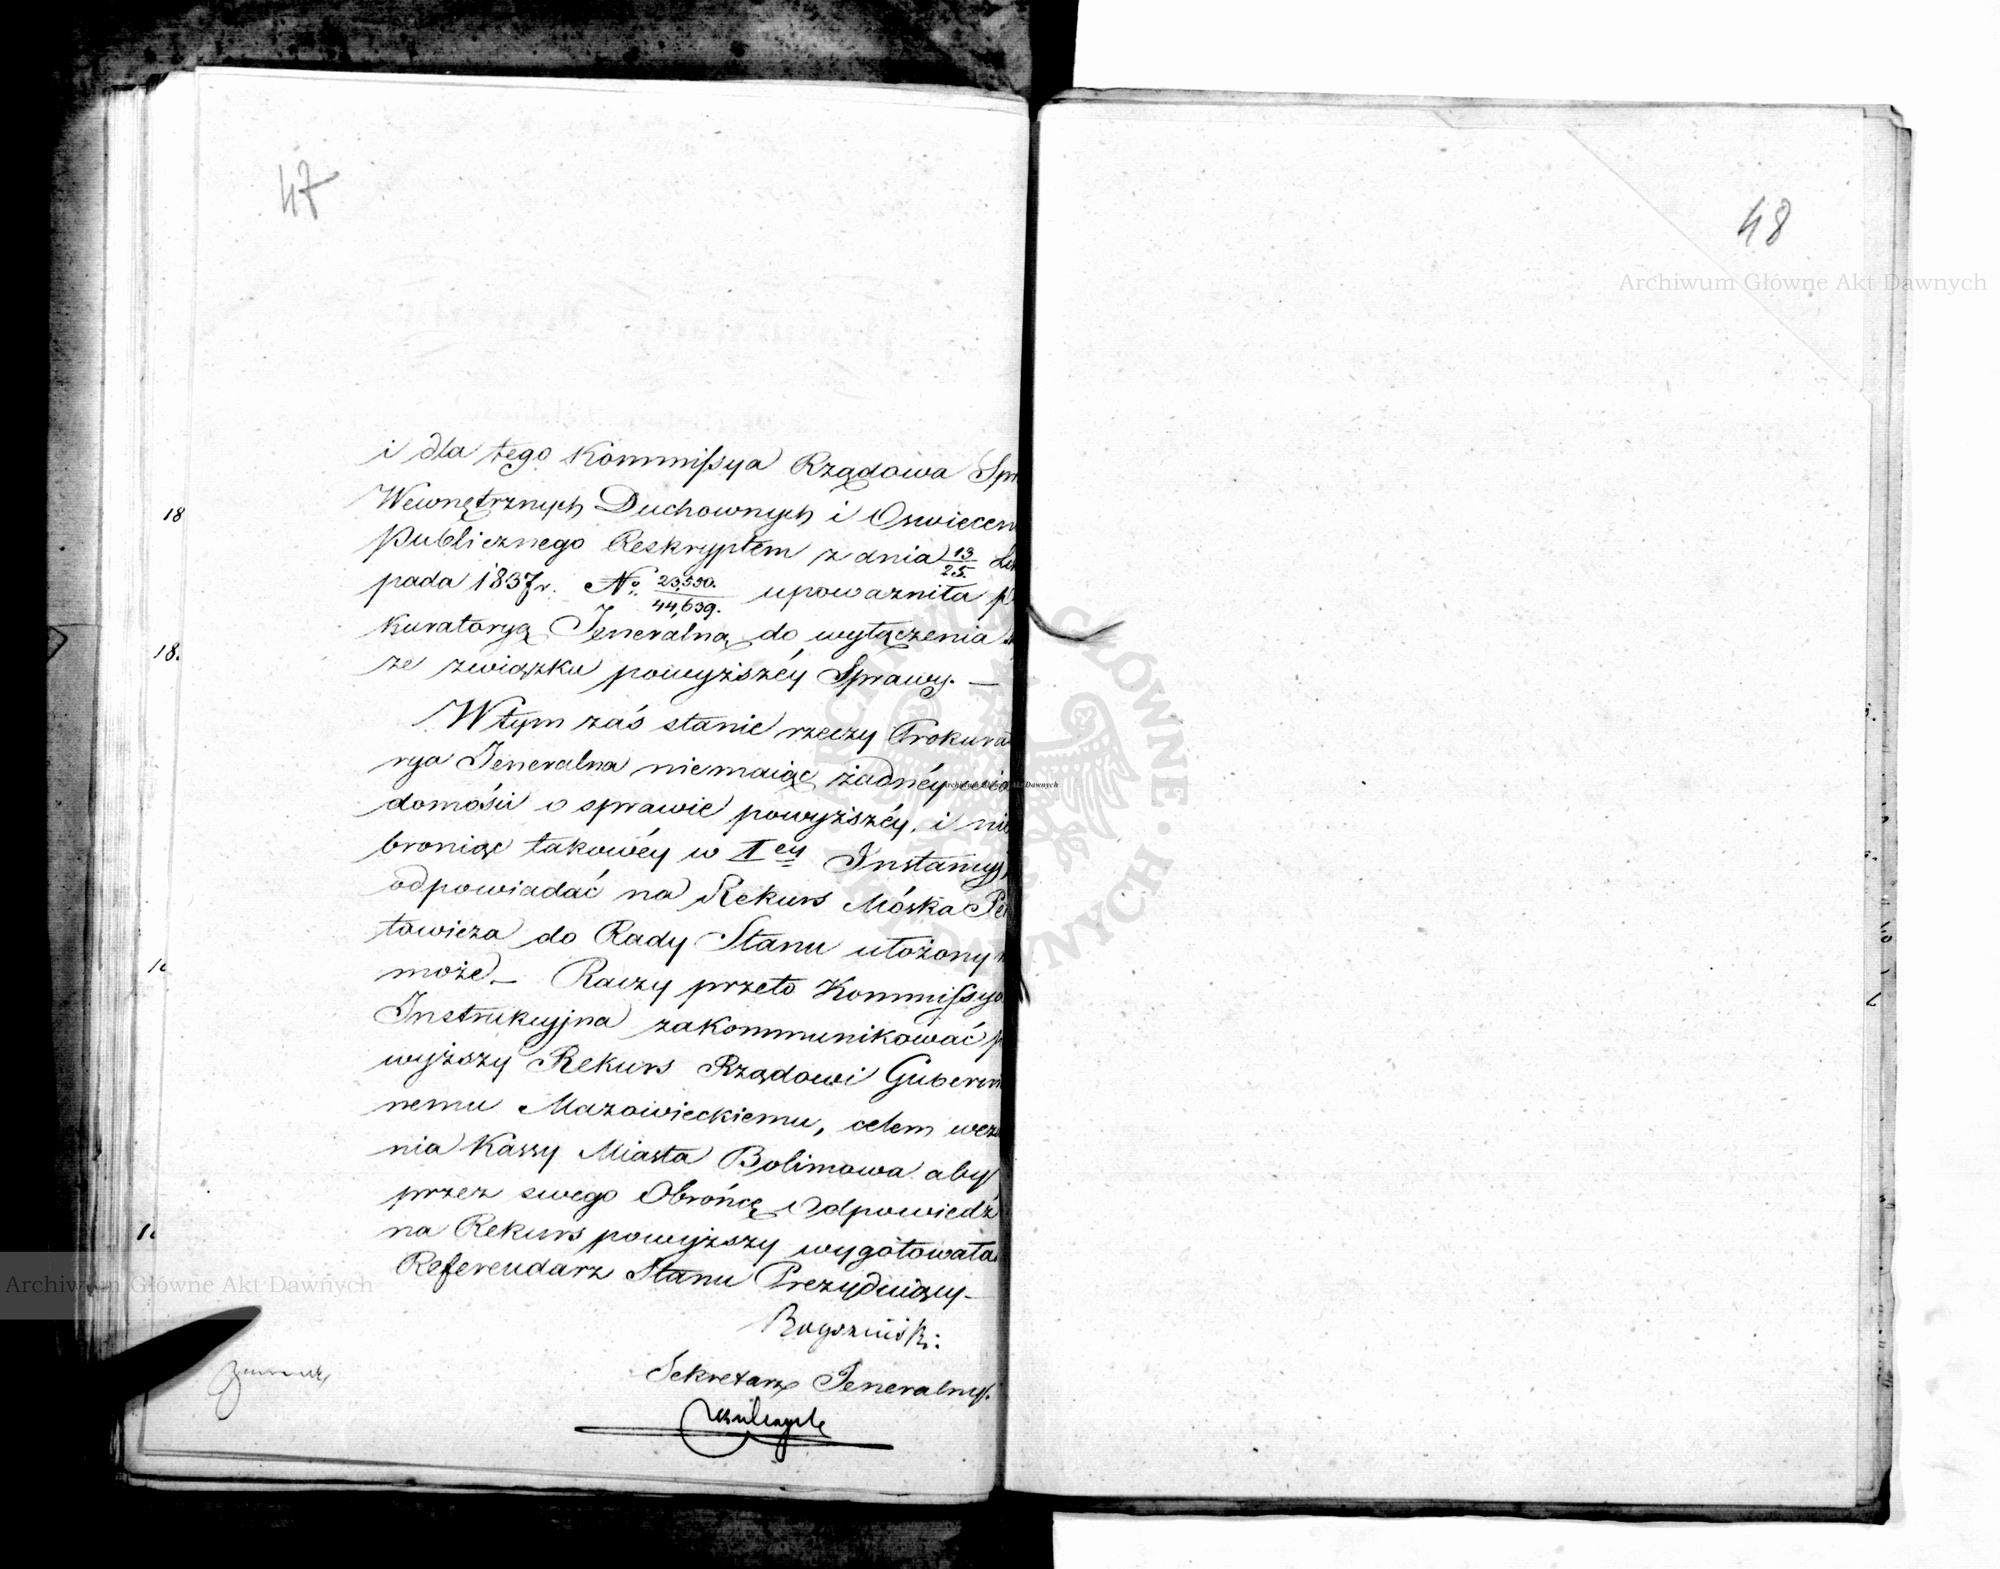 47
i dla tego Kommissya Rządowa Spr
Wewnętrznych Duchownych i Oswiecen
Publicznego Reskryptem z dnia 13/25 Lis
pada 1837 r. No. 23,550./44,639. upoważniła p
kuratoryą Jeneralną do wyłączenia
ze związku powyższéy Sprawy. —
W tym zaś stanie rzeczy Prokura
rya Jeneralna niemaiąc żadnéy wia
domości o sprawie powyższéy, i nie
broniąc takowéy w I ey Instancyi
odpowiadać na Rekurs Móska Pe
towicza do Rady Stanu ułożony
może. — Raczy przeto Kommissya
Instrukcyjna zakommunikować p
wyższy Rekurs Rządowi Guberni
nemu Mazowieckiemu, celem wezw
nia Kassy Miasta Bolimowa aby
przez swego Obrońcę Odpowiedź
na Rekurs powyższy wygotowała.
Referendarz Stanu Prezyduiący —
Sekretarz Jeneralny.
18
18.
48
Archiwum Główne Akt Dawnych
Archiwum Główne Akt Dawnych
Archiwum Główne Akt Dawnych
ARCHIWUM GŁÓWNE AKT DAWNYCH